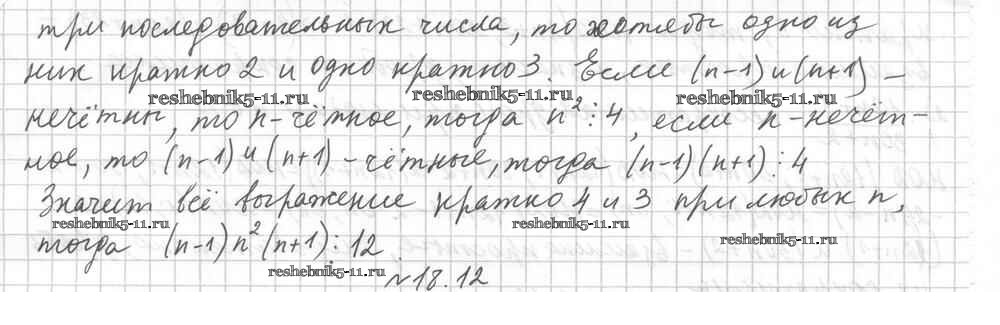 три последовательных числа, то хотябы одно из
них кратно 2 и одно кратно 3. Если (n-1) и (n+1) –
reshebnik5-11.ru reshebnik5-11.ru reshebnik5-11.ru
нечётны, то n-чётное, тогда n²⋮4, если n-нечёт-
ное, то (n-1) и (n+1) – чётные, тогда (n-1)(n+1)⋮4
Значит всё выражение кратно 4 и 3 при любых n,
reshebnik5-11.ru reshebnik5-11.ru reshebnik5-11.ru
тогда (n-1)n²(n+1)⋮12
reshebnik5-11.ru
№18.12